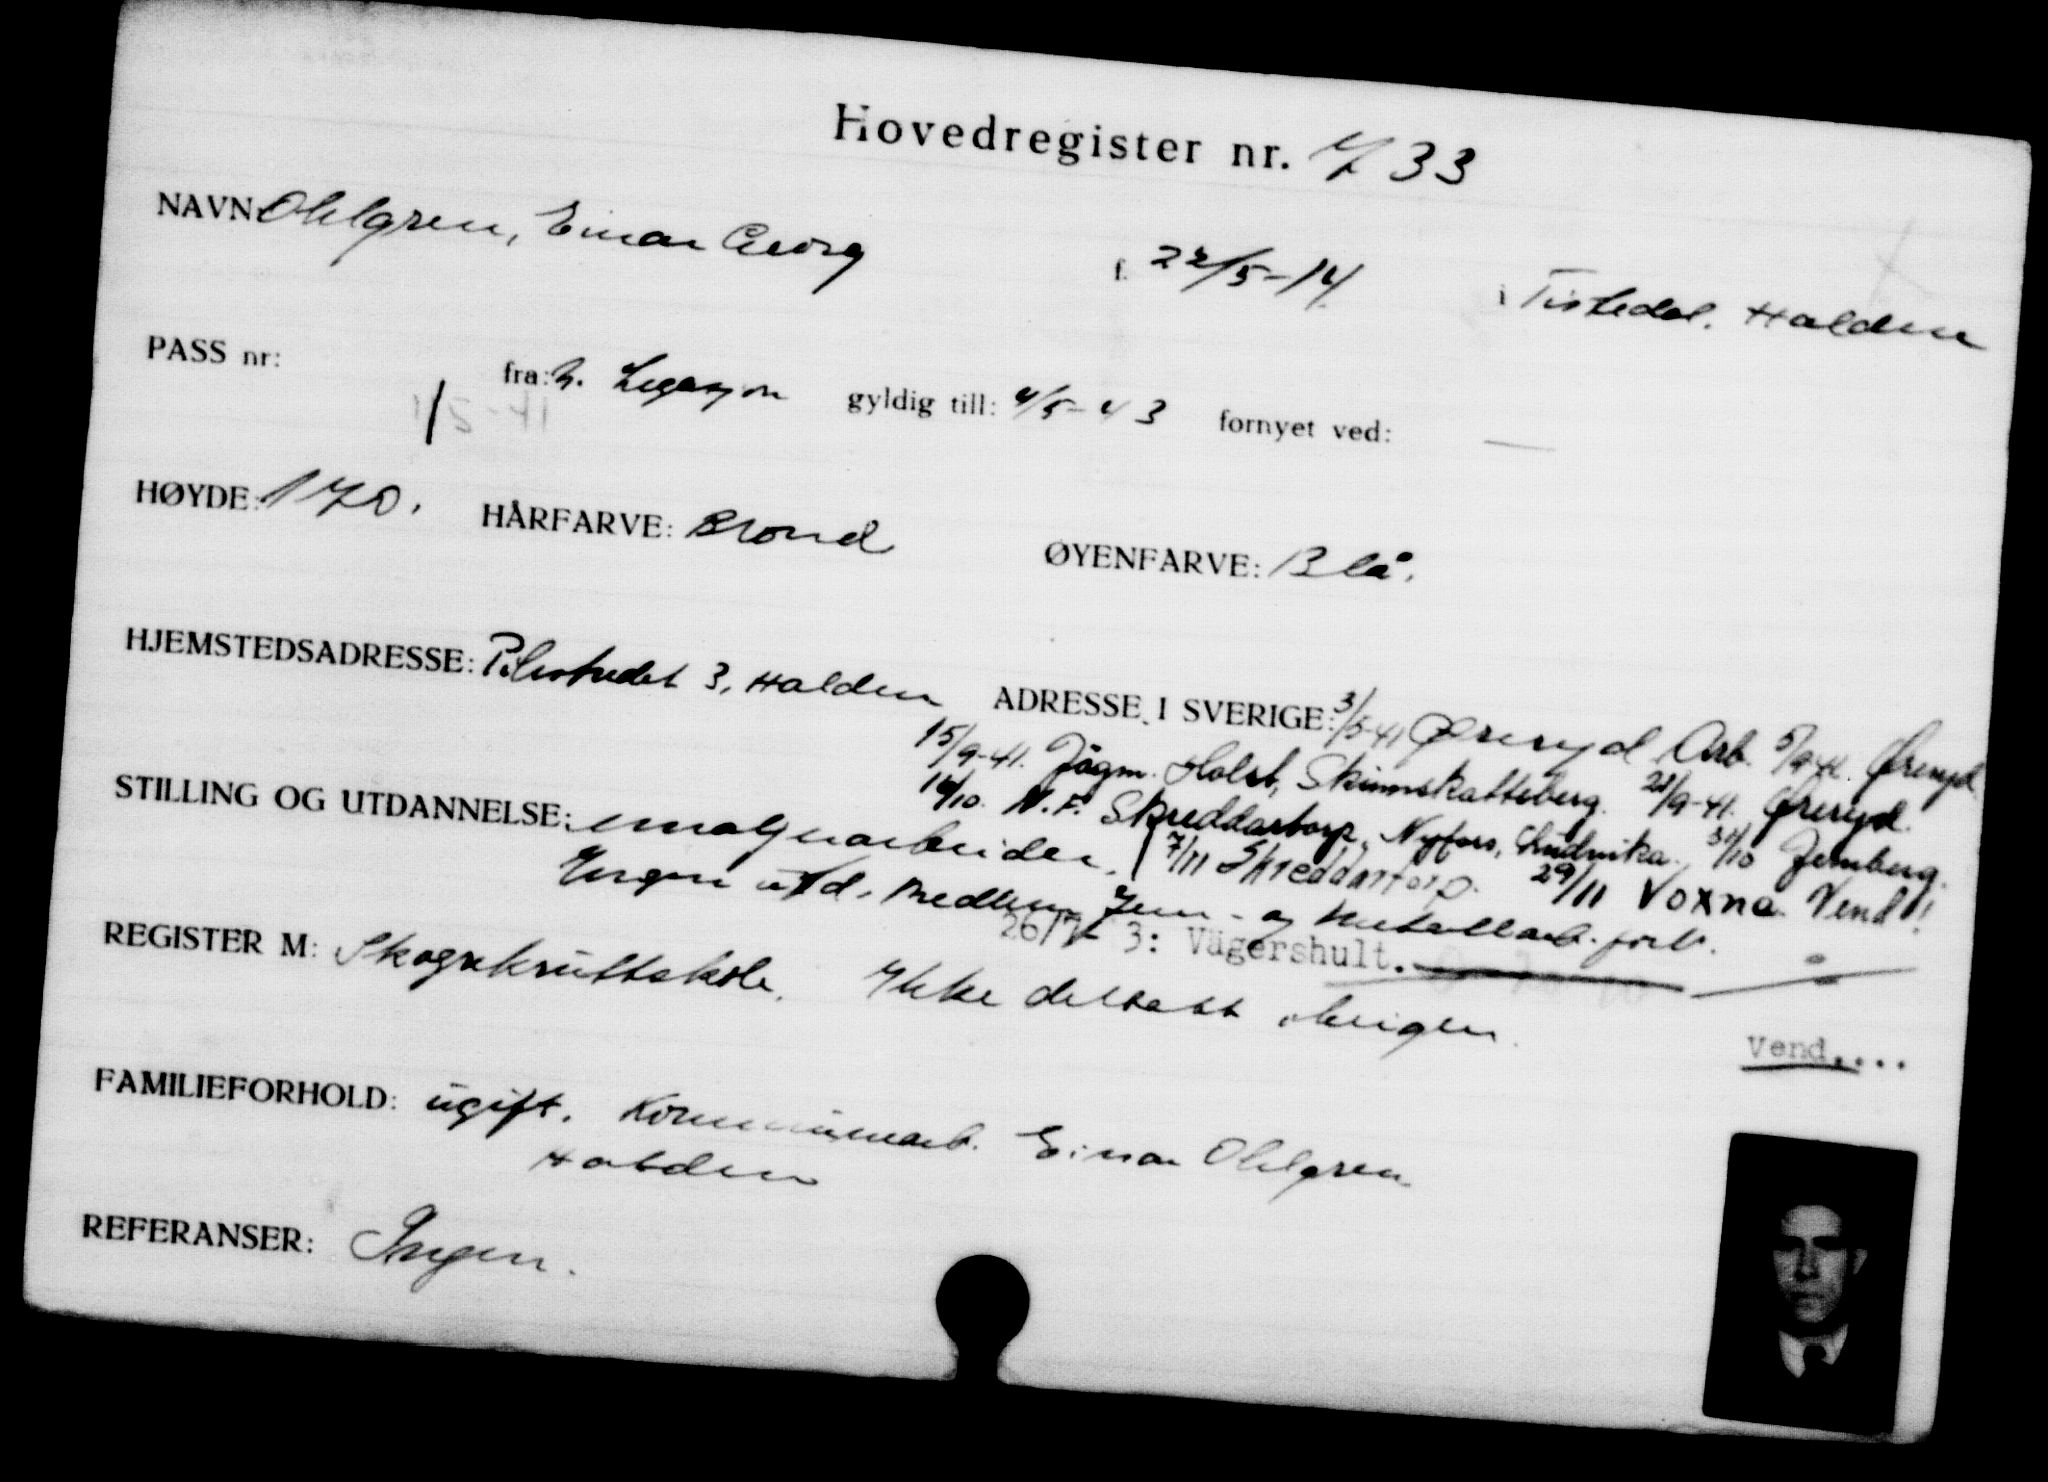 Hovedregister nr. 733
NAVN: Ohlgren, Einar Georg f. 22/5-14 i Tistedal. Halden
PASS nr: fra: N. Legasjon gyldig till: 4/5-43 fornyet ved: —
1/5-41
HØYDE: 170. HÅRFARVE: Blond ØYENFARVE: Blå.
HJEMSTEDSADRESSE: Pilestredet 3, Halden ADRESSE I SVERIGE: 3/5-41 Øreryd Arb. 5/9-41. Øreryd
15/9-41. Jägm. Holst, Skinnskatteberg. 22/9-41. Øreryd.
14/10. N.F. Skreddartorp, Nyfors, Ludvika. 31/10 Jernberg.
STILLING OG UTDANNELSE: emaljearbeider. 7/11 Skreddartorp. 29/11 Voxna. Vend!
Ingen utd. Medlem Jern- og Metallarb. forb.
26/7- 3: Vägershult.
REGISTER M: Skogskruttskole. Ikke deltatt i krigen.
Vend....
FAMILIEFORHOLD: ugift. Kommunearb. Einar Ohlgren
Halden
REFERANSER: Ingen.